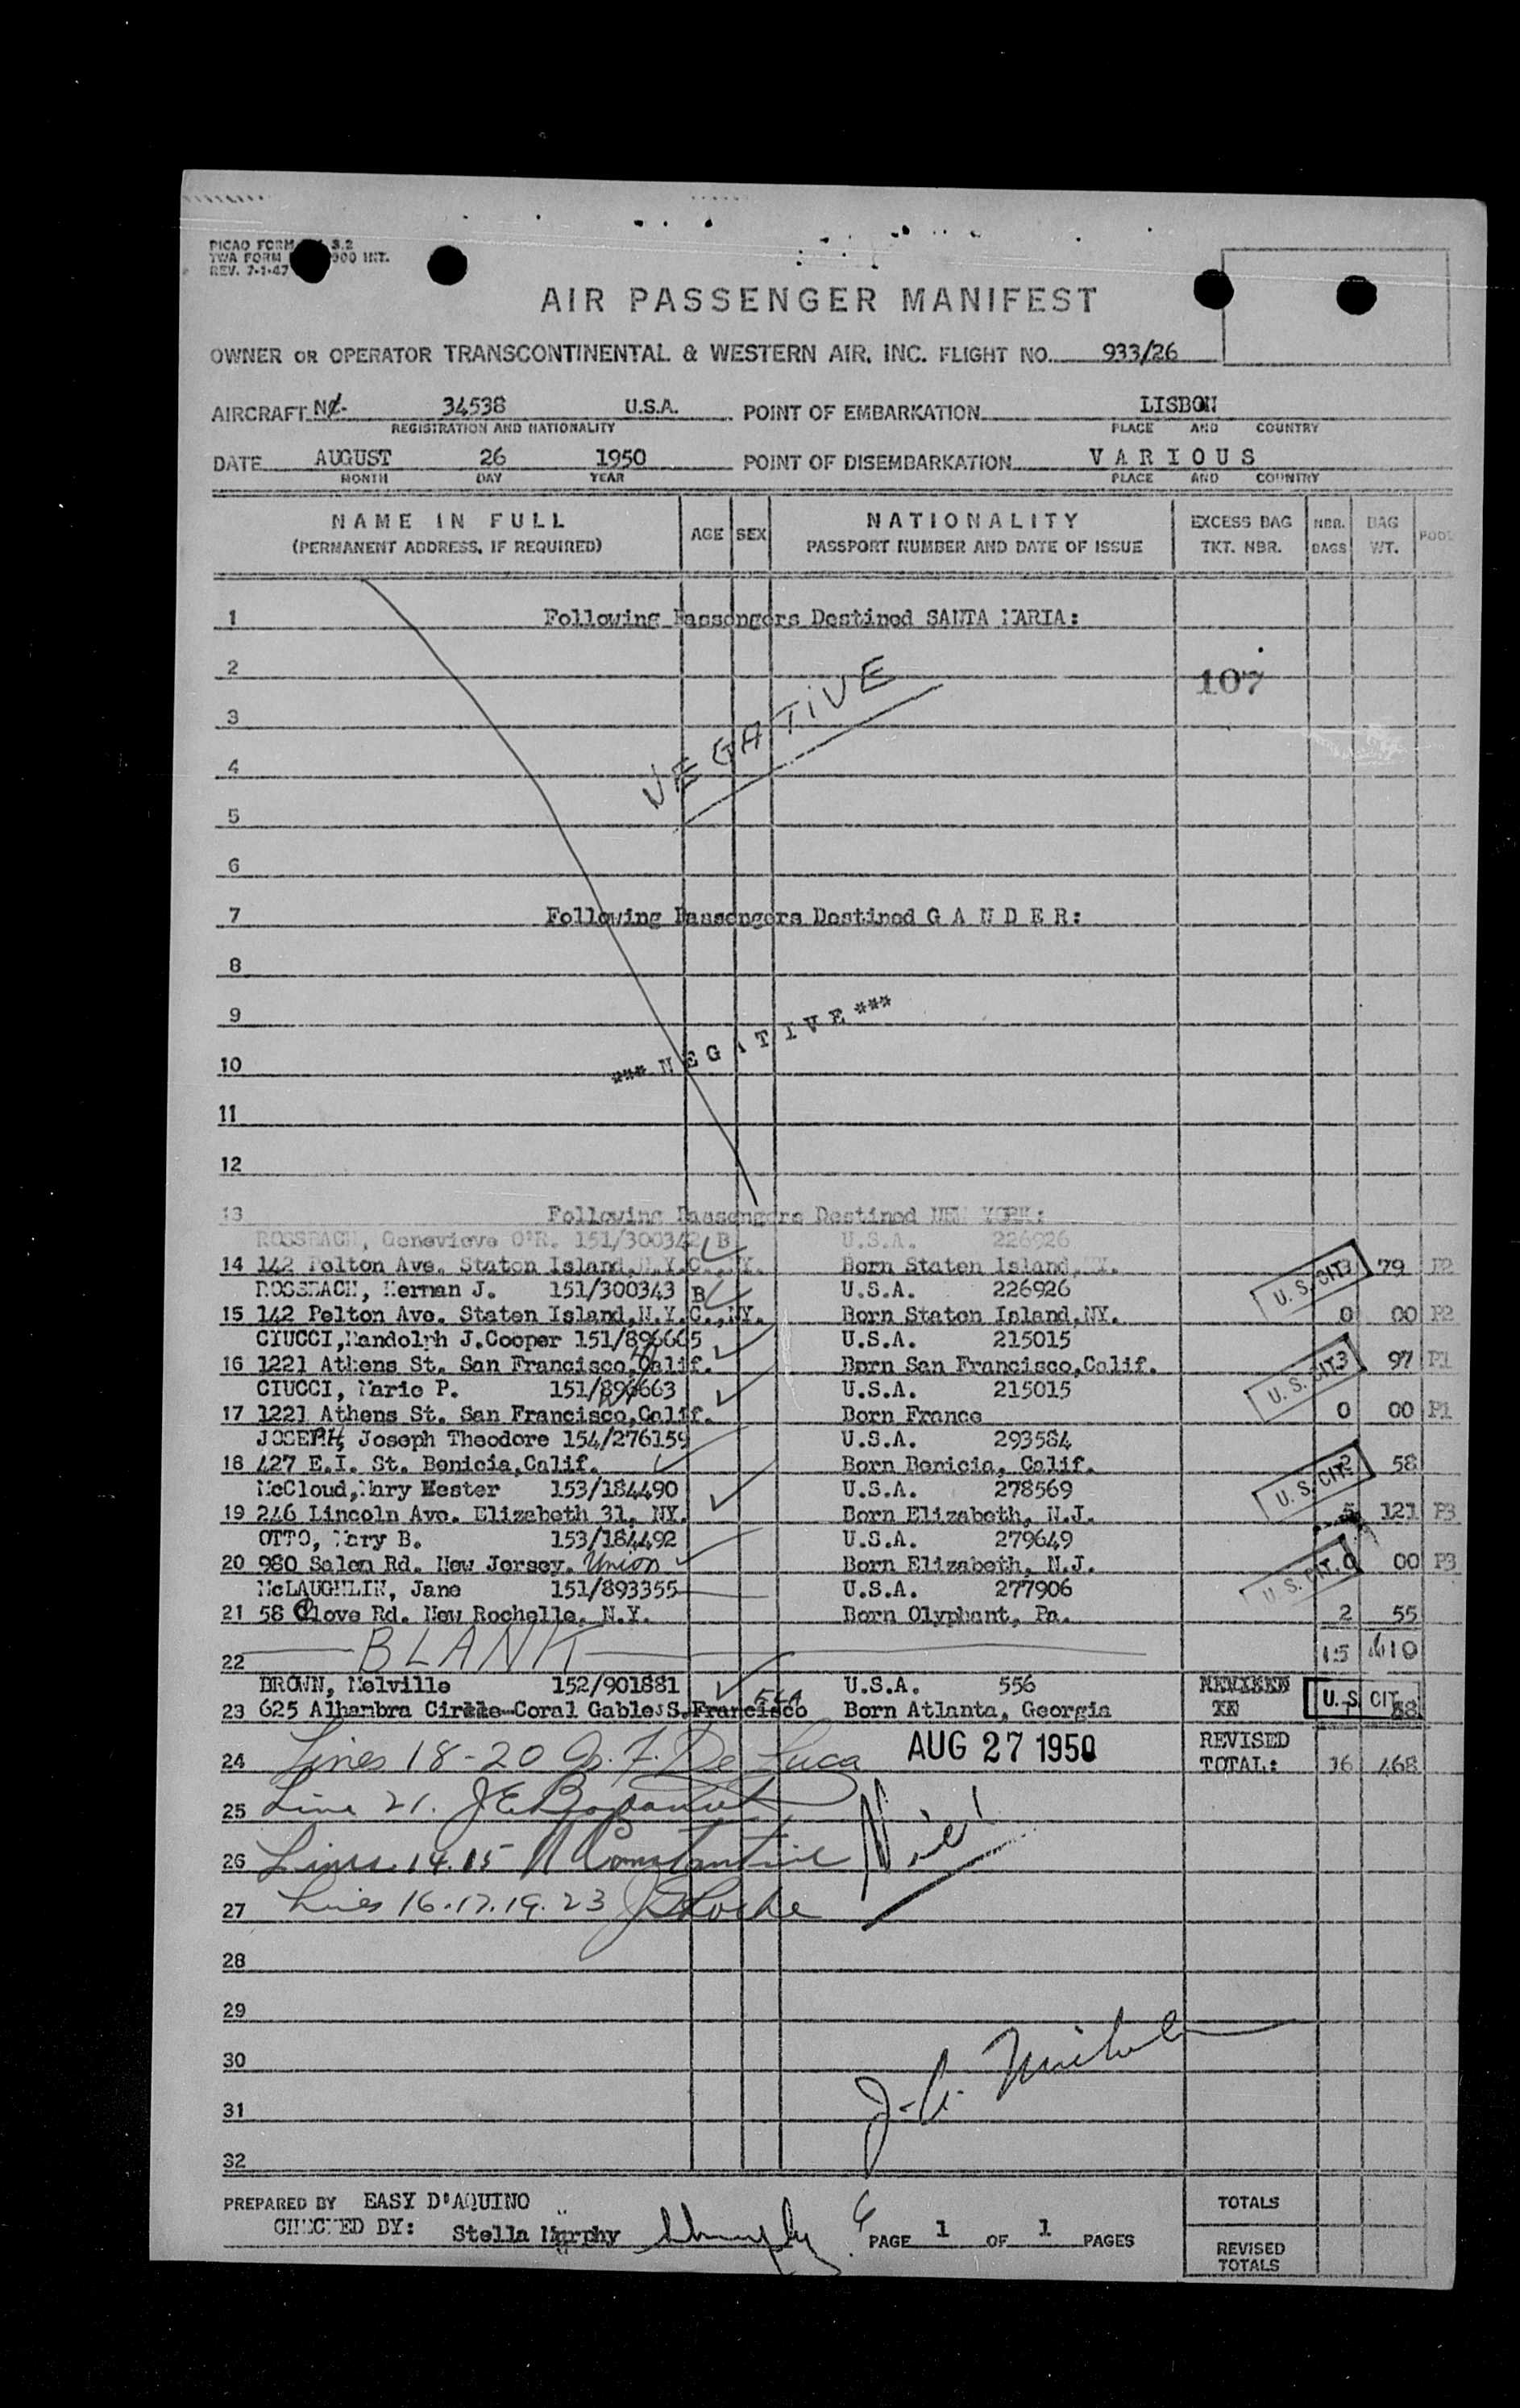 PICAO FORM S.2
TWA FORM 900 INT.
REV. 7-1-47
AIR PASSENGER MANIFEST
OWNER OR OPERATOR TRANSCONTINENTAL & WESTERN AIR, INC. FLIGHT NO. 933/26
AIRCRAFT 34538 U.S.A. POINT OF EMBARKATION LISBON
REGISTRATION AND NATIONALITY PLACE AND COUNTRY
DATE AUGUST 26 1950 POINT OF DISEMBARKATION VARIOUS
MONTH DAY YEAR PLACE AND COUNTRY
NAME IN FULL AGE SEX NATIONALITY EXCESS BAG NBR. BAG
(PERMANENT ADDRESS, IF REQUIRED) PASSPORT NUMBER AND DATE OF ISSUE TKT. NBR. BAGS WT.
1 Following Passengers Destined SANTA MARIA:
2 107
3 NEGATIVE
4
5
6
7 Following Passengers Destined G A N D E R:
8
9
10 *** N E G A T I V E ***
11
12
13 Following Passengers Destined NEW YORK:
ROSSBACH, Genevieve O'R. 151/300342 B U.S.A. 226926
14 142 Pelton Ave. Staten Island, N.Y.C., NY. Born Staten Island, NY. U. S. CIT. 79 P2
ROSSBACH, Herman J. 151/300343 B U.S.A. 226926
15 142 Pelton Ave. Staten Island, N.Y.C., NY. Born Staten Island, NY. 0 00 P2
CIUCCI, Randolph J.Cooper 151/896665 U.S.A. 215015
16 1221 Athens St. San Francisco, Calif. Born San Francisco, Calif. U. S. CIT. 3 97 P1
CIUCCI, Marie P. 151/896663 U.S.A. 215015
17 1221 Athens St. San Francisco, Calif. Born France 0 00 P1
JOSEPH, Joseph Theodore 154/276159 U.S.A. 293584
18 427 E.I. St. Benicia, Calif. Born Benicia, Calif. U. S. CIT. 2 58
McCloud, Mary Hester 153/184490 U.S.A. 278569
19 246 Lincoln Ave. Elizabeth 31, NY. Born Elizabeth, N.J. 5 121 P3
OTTO, Mary B. 153/184492 U.S.A. 279649
20 980 Salem Rd. New Jersey. Union Born Elizabeth, N.J. U. S. CIT. 0 00 P3
McLAUGHLIN, Jane 151/893355 U.S.A. 277906
21 58 Clove Rd. New Rochelle, N.Y. Born Olyphant, Pa. 2 55
22 BLANK 15 410
BROWN, Melville 152/901881 U.S.A. 556
23 625 Alhambra Circle-Coral Gables S. Francisco Born Atlanta, Georgia U. S. CIT. 58
24 Lines 18-20 De Luca AUG 27 1950 REVISED TOTAL: 16 468
25 Line 21.
26 Lines 14.15 Constantine
27 Lines 16.17.19.23 Roche
28
29
30
31
32
PREPARED BY EASY D'AQUINO TOTALS
CHECKED BY: Stella Murphy PAGE 1 OF 1 PAGES REVISED TOTALS